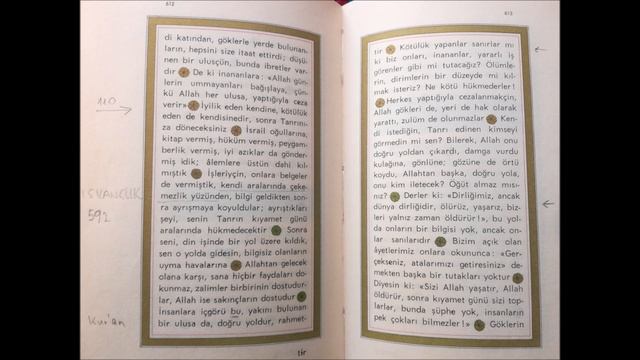 612
di katından, göklerle yerde bulunan-
ların, hepsini size itaat ettirdi; düşü-
nen bir ulusçün, bunda ibretler var-
dır De ki inananlara: «Allah gün-
lerin ummayanları bağışlaya, çün-
kü Allah her ulusa, yaptığıyla ceza
verir» İyilik eden kendine, kötülük
eden de kendisinedir, sonra Tanrını-
za döneceksiniz İsrail oğullarına,
kitap vermiş, hüküm vermiş, peygam-
berlik vermiş, iyi azıklar da gönder-
miş idik; âlemlere üstün dahi kıl-
mıştık İşleriyçin, onlara belgeler
de vermiştik, kendi aralarında çeke-
mezlik yüzünden, bilgi geldikten son-
ra ayrışmaya koyuldular; ayrıştıkları
şeyi, senin Tanrın kıyamet günü
aralarında hükmedecektir Sonra
seni, din işinde bir yol üzere kıldık,
sen o yolda gidesin, bilgisiz olanların
uyma havalarına Allahtan gelecek
olana karşı, sana hiçbir faydaları do-
kunmaz, zalimler birbirinin dostudur-
lar, Allah ise sakınçların dostudur
İnsanlara içgörü bu, yakını bulunan
bir ulusa da, doğru yoldur, rahmet-
tir
110
592
Kur'an
613
tir Kötülük yapanlar sanırlar mı
ki biz onları, inananlar, yararlı iş
görenler gibi mi tutacağız? Ölümle-
rin, dirimlerin bir düzeyde mi kıl-
mak isteriz? Ne kötü hükmederler!
Herkes yaptığıyla cezalanmakçin,
Allah gökleri de, yeri de hak olarak
yarattı, zulüm de olunmazlar Ken-
di istediğin, Tanrı edinen kimseyi
görmedin mi sen? Bilerek, Allah onu
doğru yoldan çıkardı, damga vurdu
kulağına, gönlüne; gözüne de örtü
koydu, Allahtan başka, doğru yola,
onu kim iletecek? Öğüt almaz mısı-
nız? Derler ki: «Dirliğimiz, ancak
dünya dirliğidir, ölürüz, yaşarız, biz-
leri yalnız zaman öldürür!», bu yol-
da onların bir bilgisi yok, ancak on-
lar sanılarıdır Bizim açık olan
âyetlerimiz onlara okununca: «Ger-
çekseniz, atalarımızı getiresiniz» de-
mekten başka bir tutakları yoktur
Diyesin ki: «Sizi Allah yaşatır, Allah
öldürür, sonra kıyamet günü sizi top-
larlar, bunda şüphe yok, insanların
pek çokları bilmezler!» Göklerin